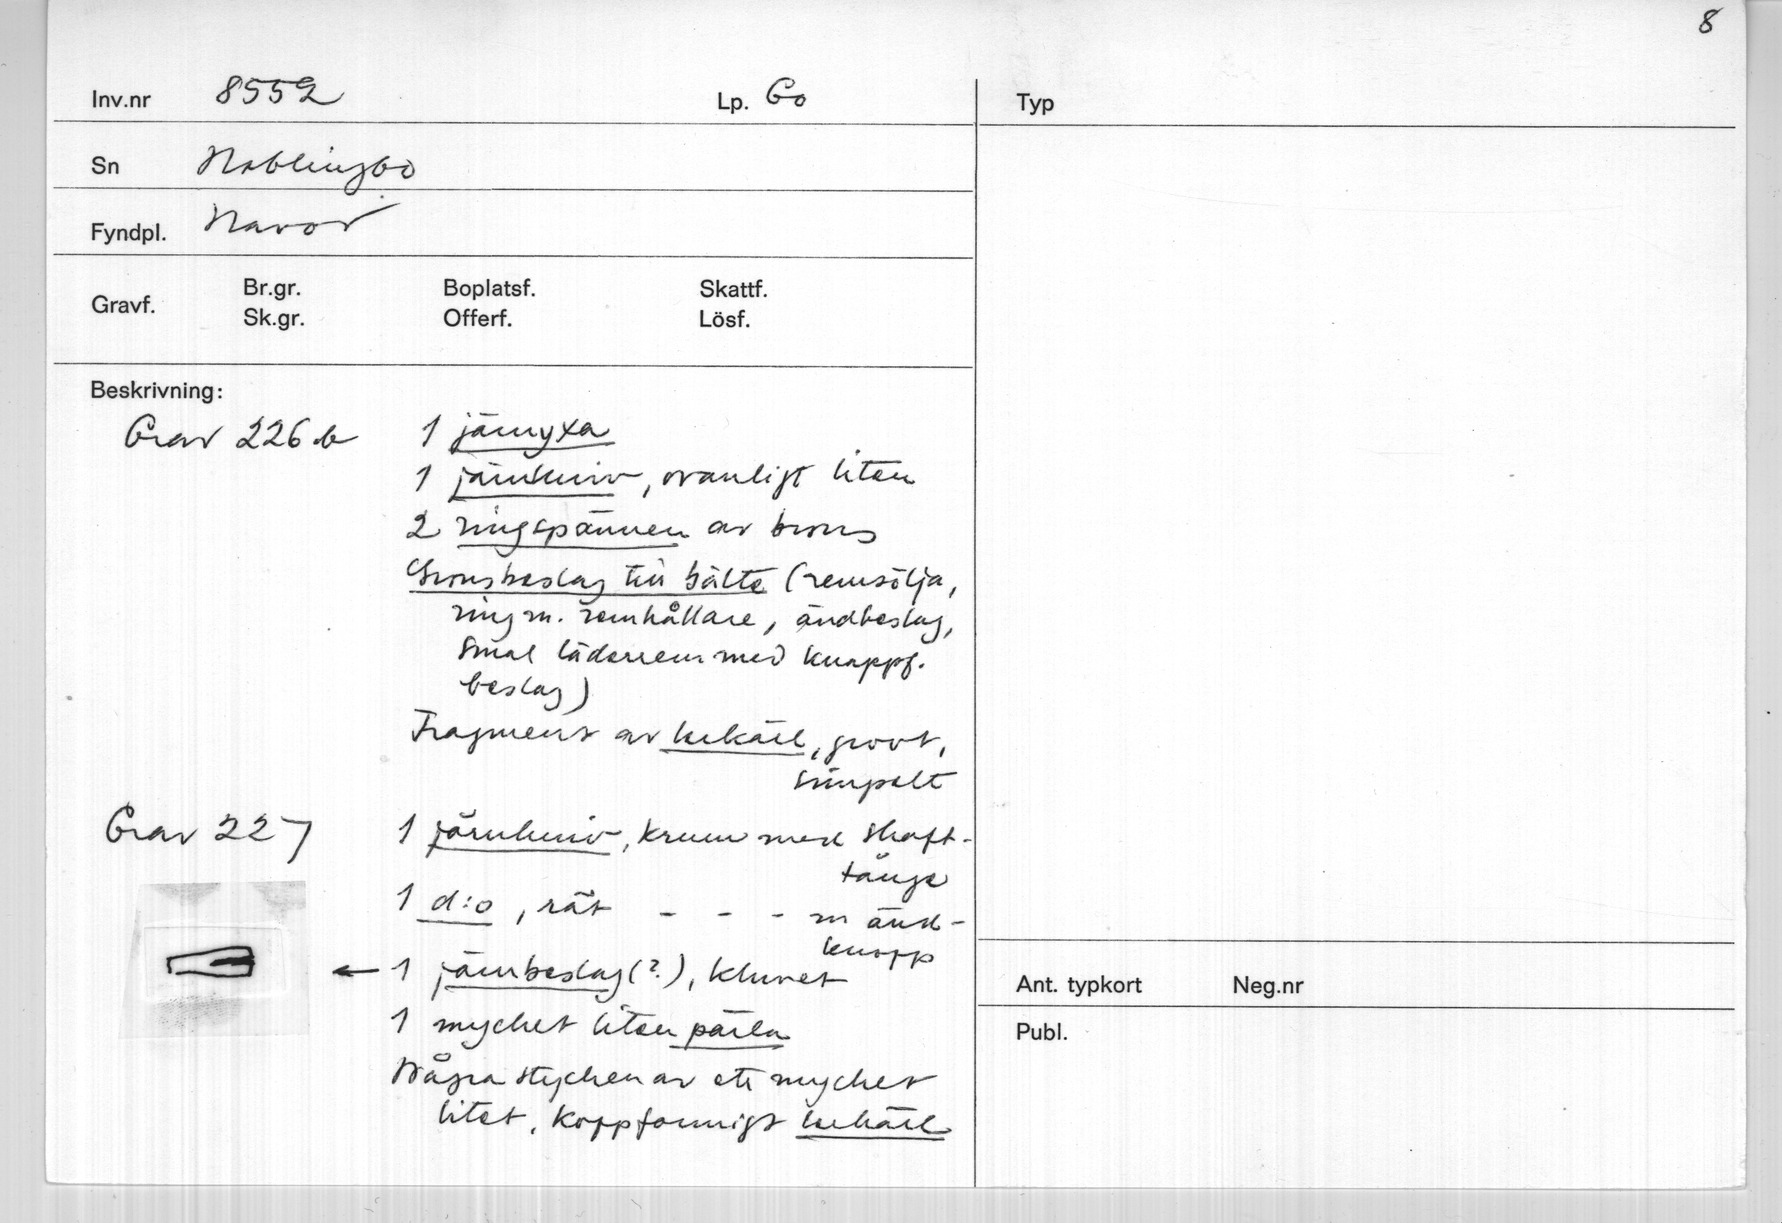 8
Inv.nr 8552 Lp. Go
Sn Hablingbo
Fyndpl. Havor
Gravf. Br.gr. Boplatsf. Skattf.
Sk.gr. Offerf. Lösf.
Beskrivning:
Grav 226 b 1 järnyxa
1 järnkniv, ovanligt liten
2 ringspännen av brons
Bronsbeslag till bälte (remsölja,
ring m. remhållare, ändbeslag,
smal läderrem med knappf.
beslag)
Fragment av lerkärl, grovt,
simpelt
Grav 227 1 järnkniv, krum med skaft-
tånge
1 d:o, rät - - - m änd-
knopp
← 1 järnbeslag(?), kluvet
1 mycket liten pärla
Några stycken av ett mycket
litet, koppformigt lerkärl
Typ
Ant. typkort Neg.nr
Publ.